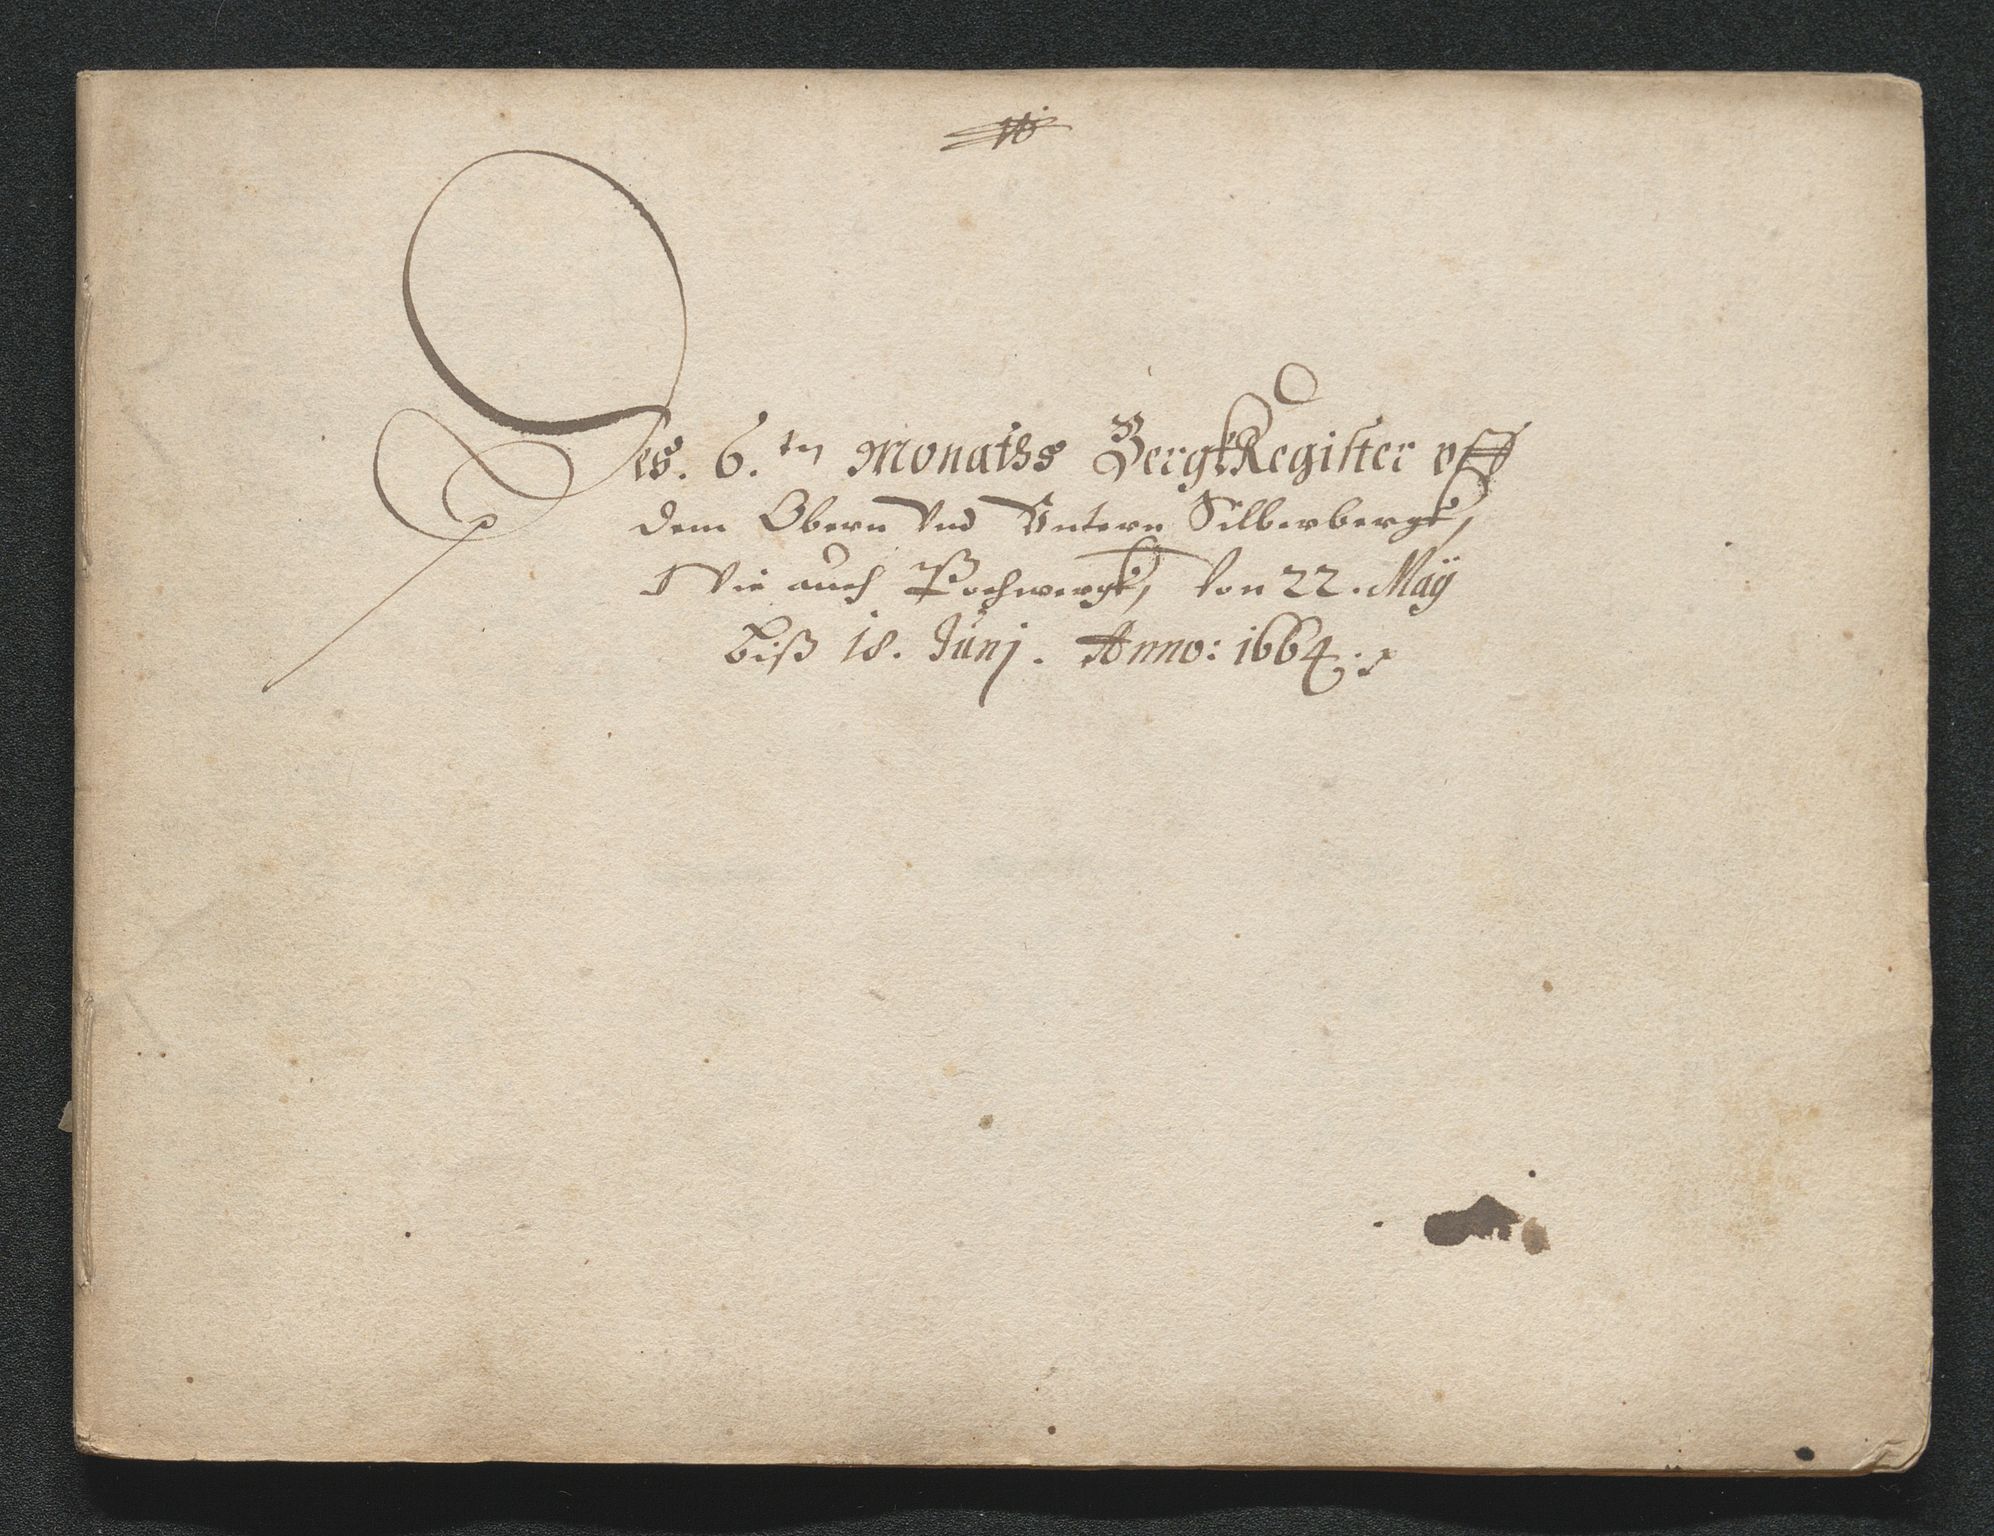 Des. 6.ten Monaths BergkRegister vff
dem Obern vnd Vntern Silberbergk,
Wie auch Pochwergk, Von 22. Maÿ
biß 18. Junj. Anno: 1664.